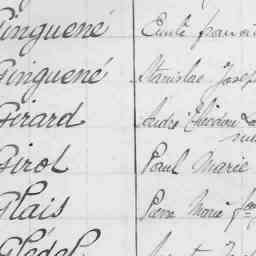 Ginguené Emile franço
Ginguené Stanislas Josep
Girard André Théodore
Girol Paul Marie
Glais Pierre Marie
Glédel